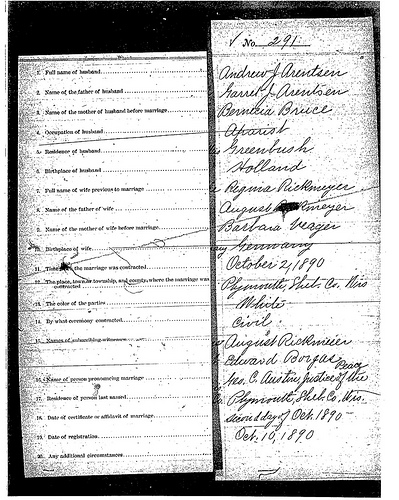 √ No. 291
1. Full name of husband Andrew J Arentsen
2. Name of the father of husband Garret J. Arentsen
3. Name of the mother of husband before marriage Berneia Bruce
4. Occupation of husband Aparist
5. Residence of husband Greenbush
6. Birthplace of husband Holland
7. Full name of wife previous to marriage Regina Rickmeyer
8. Name of the father of wife August meyer
9. Name of the mother of wife before marriage Barbara Verger
10. Birthplace of wife Germany
11. Time the marriage was contracted October 2, 1890
12. The place, town or township, and county, where the marriage was
contracted Plymouth, Sheb. Co. Wis
13. The color of the parties White
14. By what ceremony contracted Civil
15. Names of subscribing witnesses August Rickmeier
Edward Borgas
16. Name of person pronouncing marriage C. Austin, Justice of the Peace
17. Residence of person last named Plymouth, Sheb. Co. Wis.
18. Date of certificate or affidavit of marriage second day of Oct. 1890
19. Date of registration Oct. 10, 1890
20. Any additional circumstances